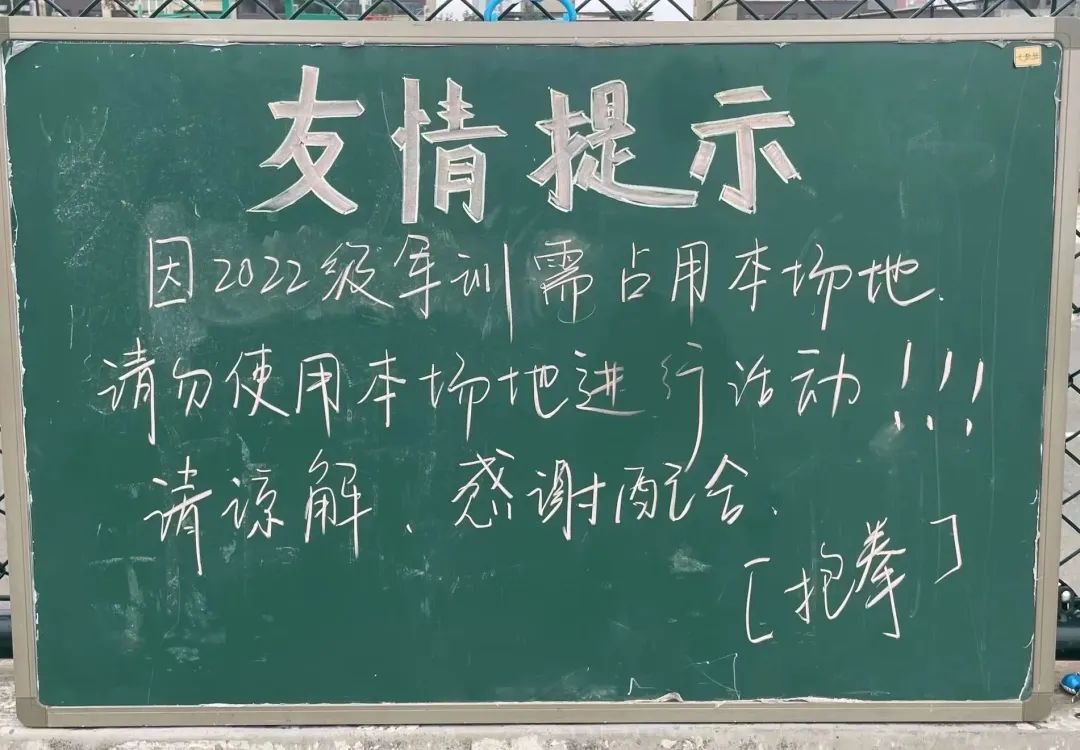 友情提示
因2022级军训需占用本场地.
请勿使用本场地进行活动!!!
请谅解、感谢配合.
[抱拳]